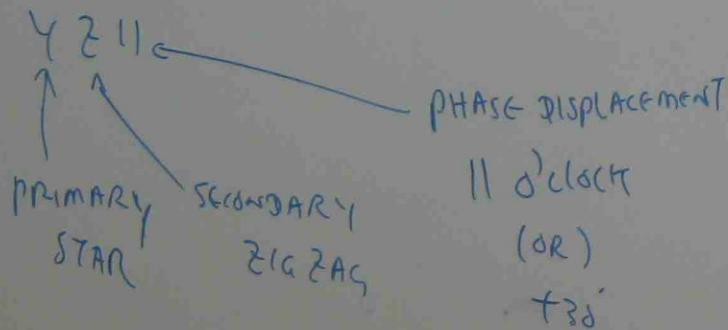 Y Z 11
PHASE DISPLACEMENT
11 o'clock
(OR)
+30°
PRIMARY
STAR
SECONDARY
ZIGZAG